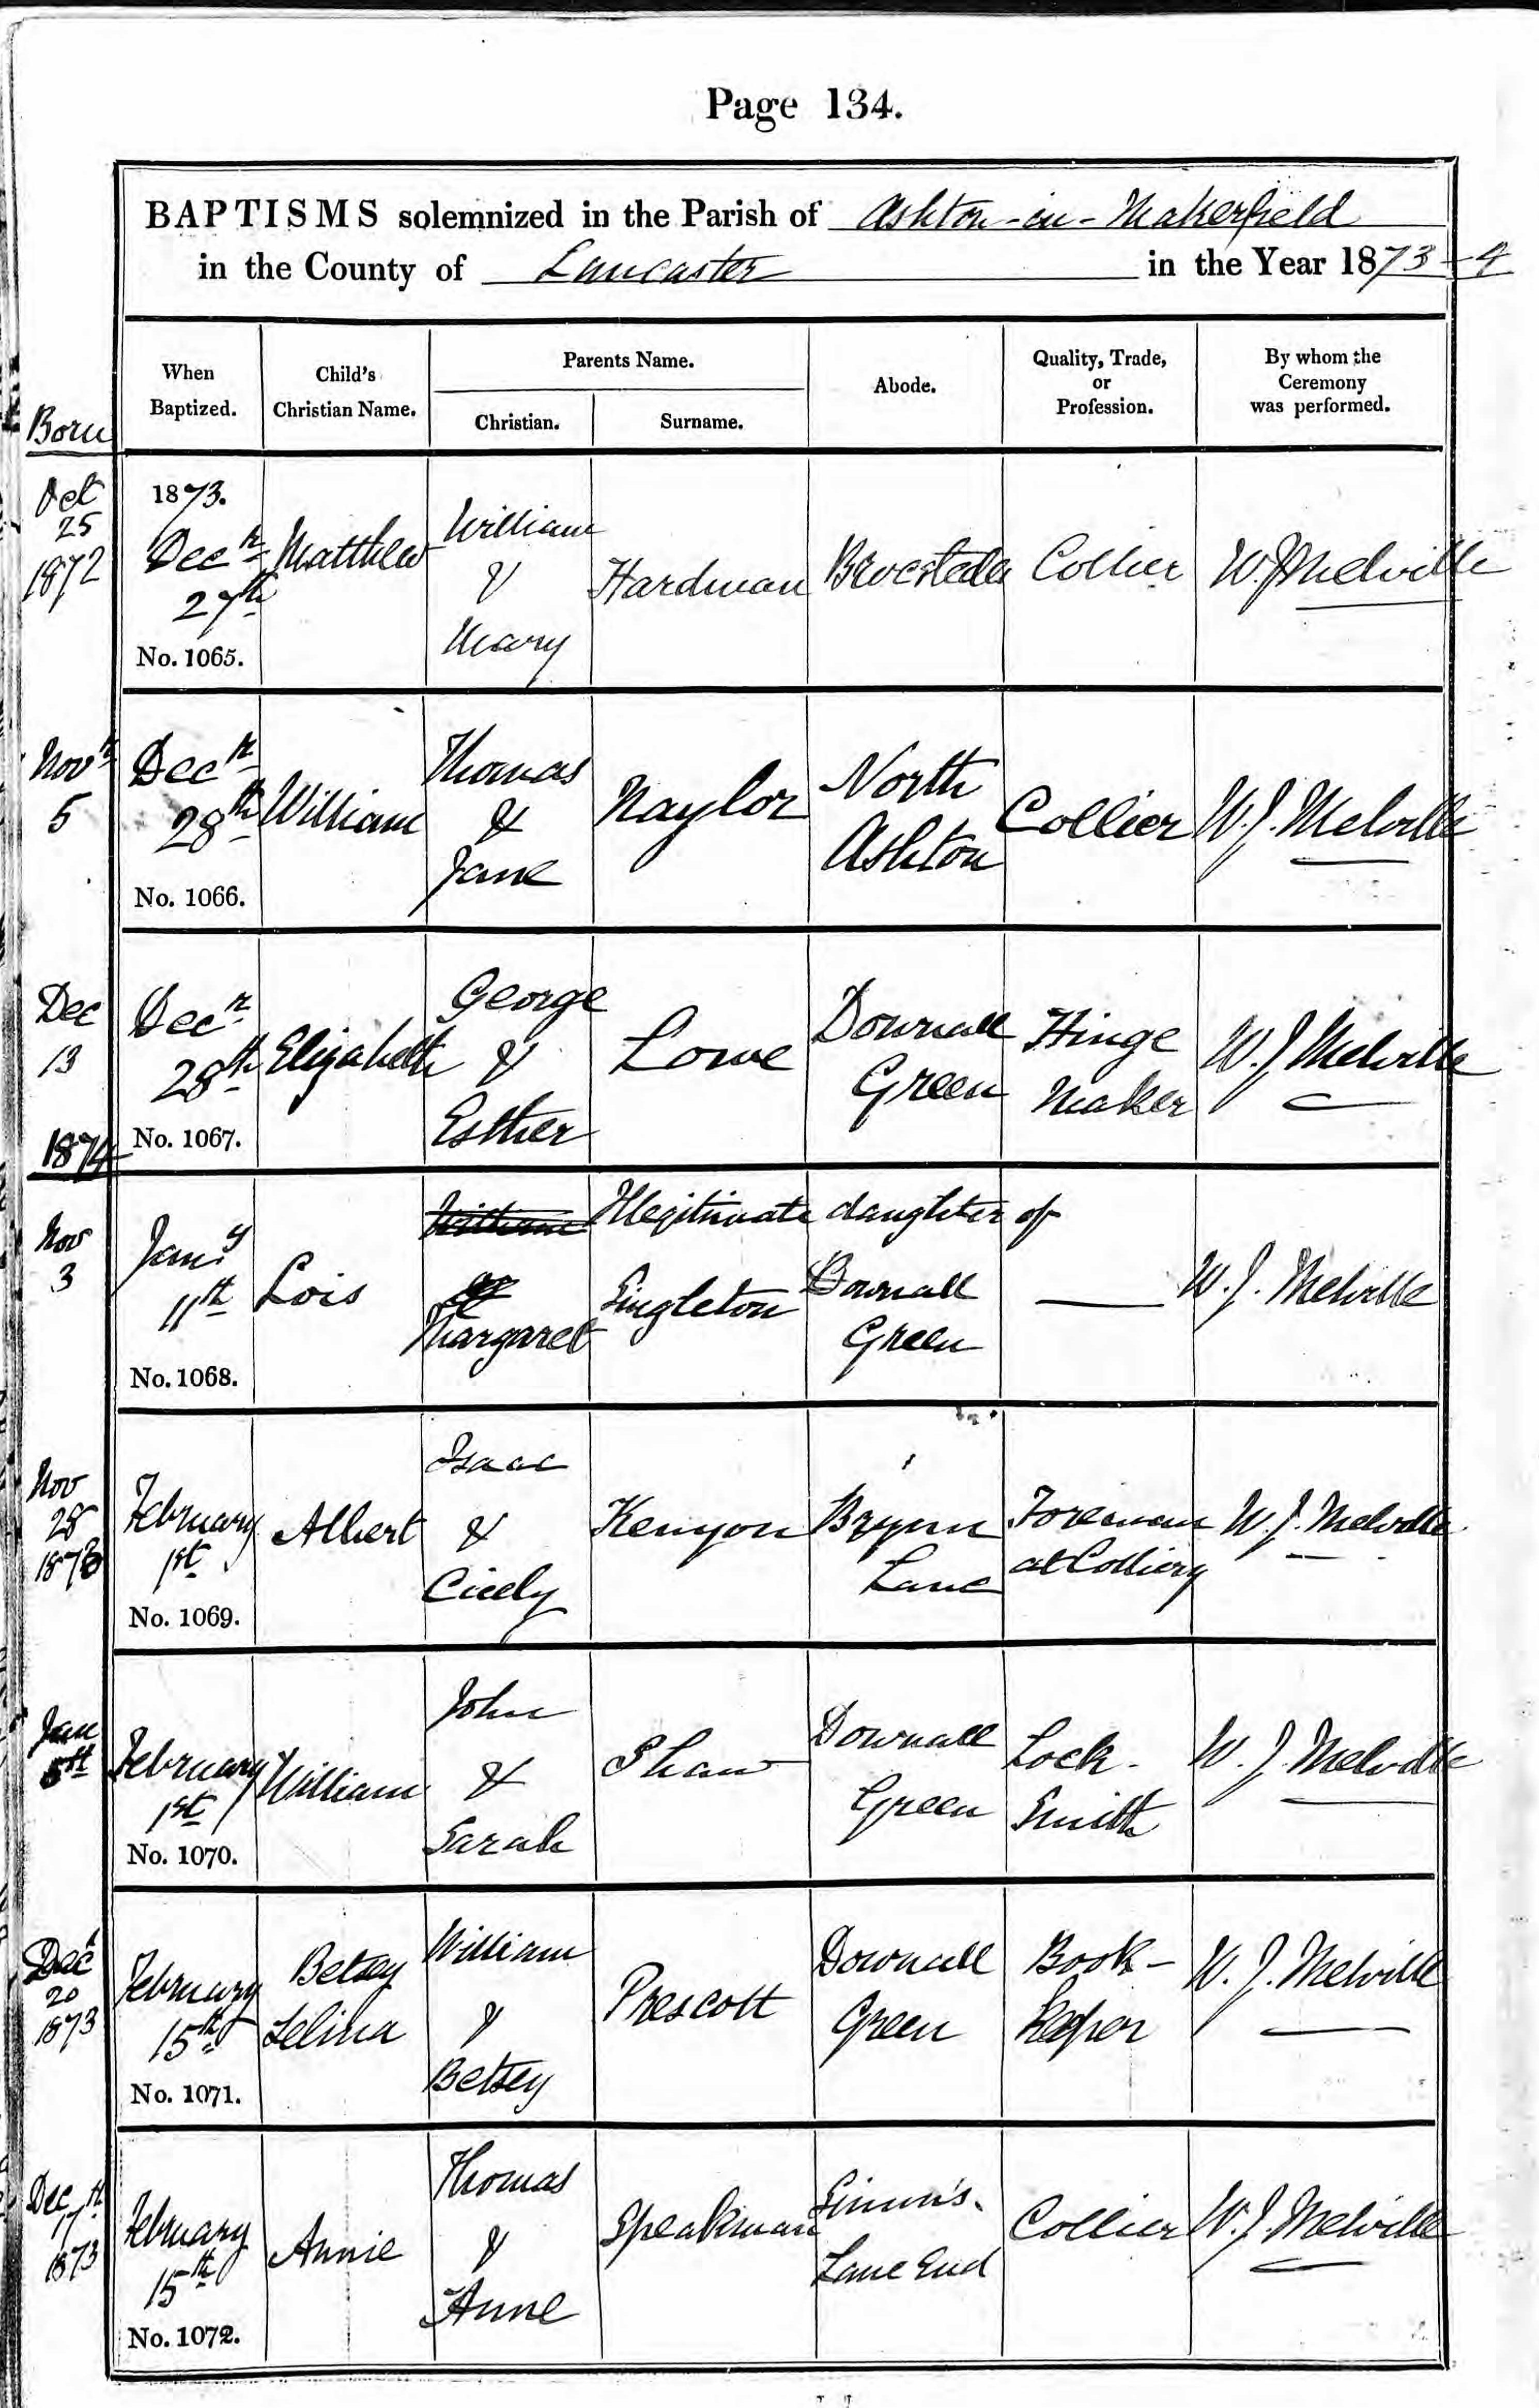 Page 134.
BAPTISMS solemnized in the Parish of Ashton-in-Makerfield
in the County of Lancaster in the Year 1873-4
When Baptized.
Child's Christian Name.
Parents Name.
Christian.
Surname.
Abode.
Quality, Trade, or Profession.
By whom the Ceremony was performed.
Born
Oct
25
1872
1873.
Decr
27th
No. 1065.
Matthew
William
&
Mary
Hardman
Collier
W. J. Melville
Novr
5
Decr
28th
No. 1066.
William
Thomas
&
Jane
Naylor
North
Ashton
Collier
W. J. Melville
Dec
13
Decr
28th
No. 1067.
Elizabeth
George
&
Esther
Lowe
Downall
Green
Hinge
Maker
W. J. Melville
1874
Nov
3
Jany
11th
No. 1068.
Lois
William
&
Margaret
Illegitimate daughter of
Singleton
Downall
Green
W. J. Melville
Nov
28
1873
February
1st
No. 1069.
Albert
Isaac
&
Cicely
Kenyon
Brynn
Lane
Foreman
at Colliery
W. J. Melville
Jan
February
1st
No. 1070.
William
John
&
Sarah
Shaw
Downall
Green
Lock-
Smith
W. J. Melville
Dec
20
1873
February
15th
No. 1071.
Betsey
Selina
William
&
Betsey
Prescott
Downall
Green
Book-
keeper
W. J. Melville
Dec
17th
1873
February
15th
No. 1072.
Annie
Thomas
&
Anne
Speakman
Simm's
Lane End
Collier
W. J. Melville